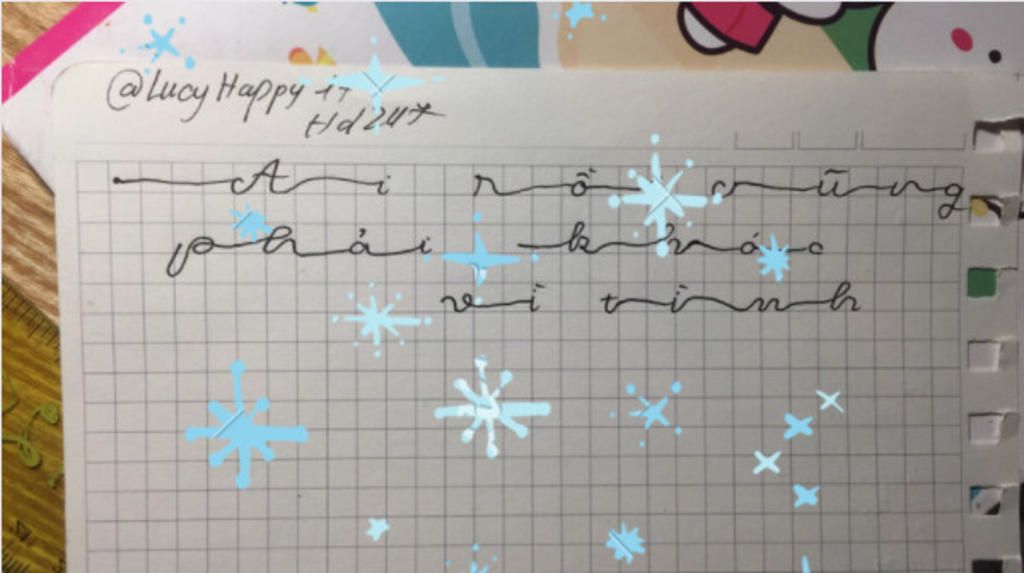 @LucyHappy it
Hd247
Ai rồ cũng
phải khóc
vì tình